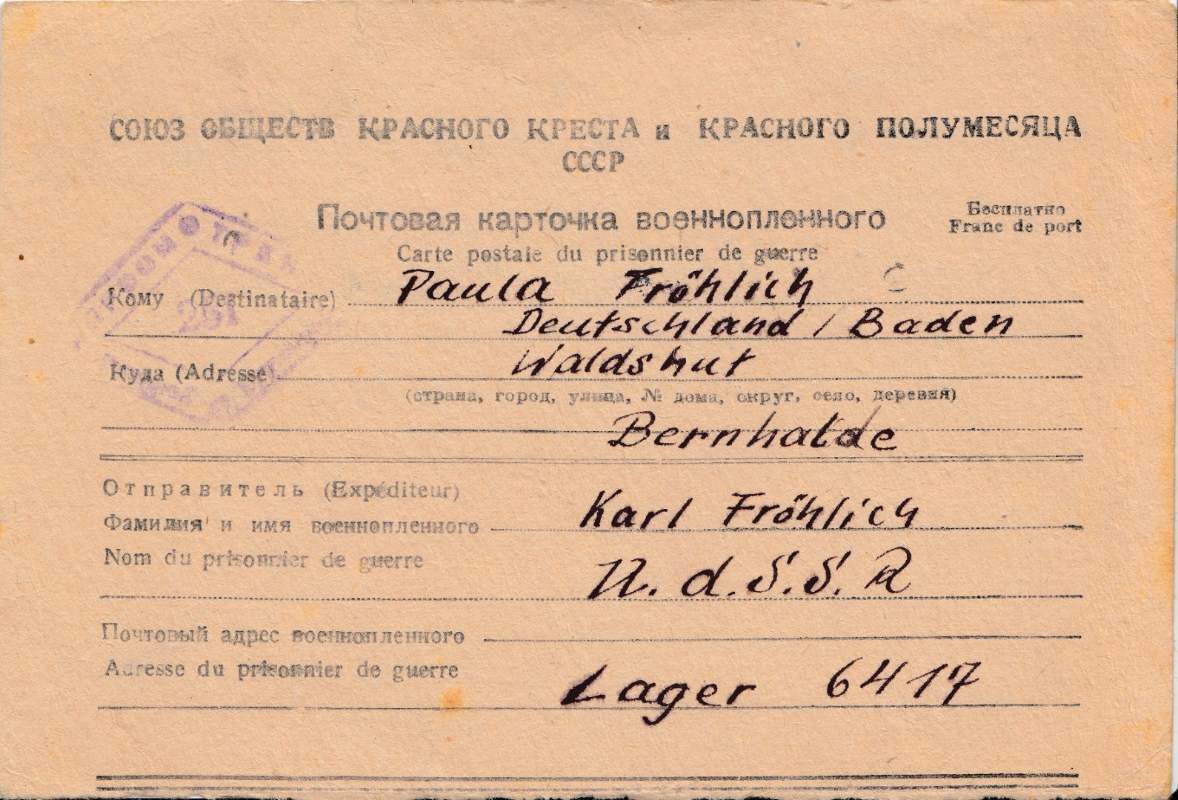 СОЮЗ ОБЩЕСТВ КРАСНОГО КРЕСТА и КРАСНОГО ПОЛУМЕСЯЦА
СССР
Почтовая карточка военнопленного
Бесплатно
Franc de port
Carte postale du prisonnier de guerre
Кому (Destinataire) Paula Fröhlich
Deutschland / Baden
Куда (Adresse) Waldshut
(страна, город, улица, № дома, округ, село, деревня)
Bernhalde
Отправитель (Expéditeur)
Фамилия и имя военнопленного Karl Fröhlich
Nom du prisonnier de guerre
U. d. S. S. R
Почтовый адрес военнопленного
Adresse du prisonnier de guerre
Lager 6417